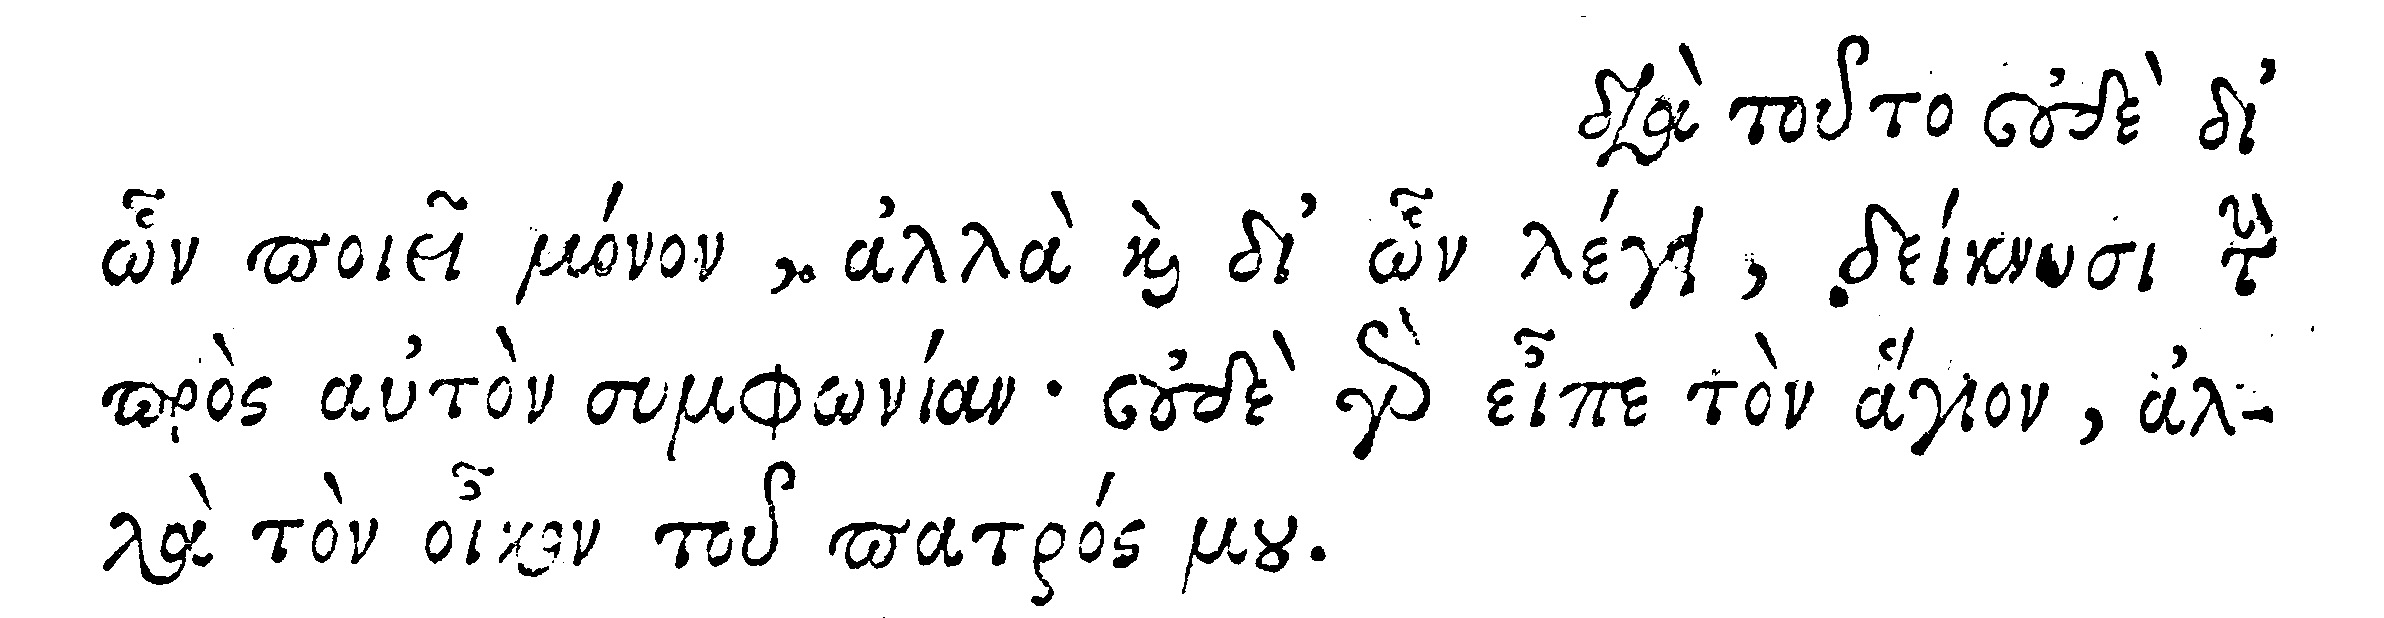 διὰ τοῦτο οὐδὲ δι᾽
ὧν ποιεῖ μόνον, ἀλλὰ καὶ δι᾽ ὧν λέγει, δείκνυσι τὴν
πρὸς αὐτὸν συμφωνίαν· οὐδὲ γὰρ εἶπε τὸν ἅγιον, ἀλ-
λὰ τὸν οἶκον τοῦ πατρός μου.